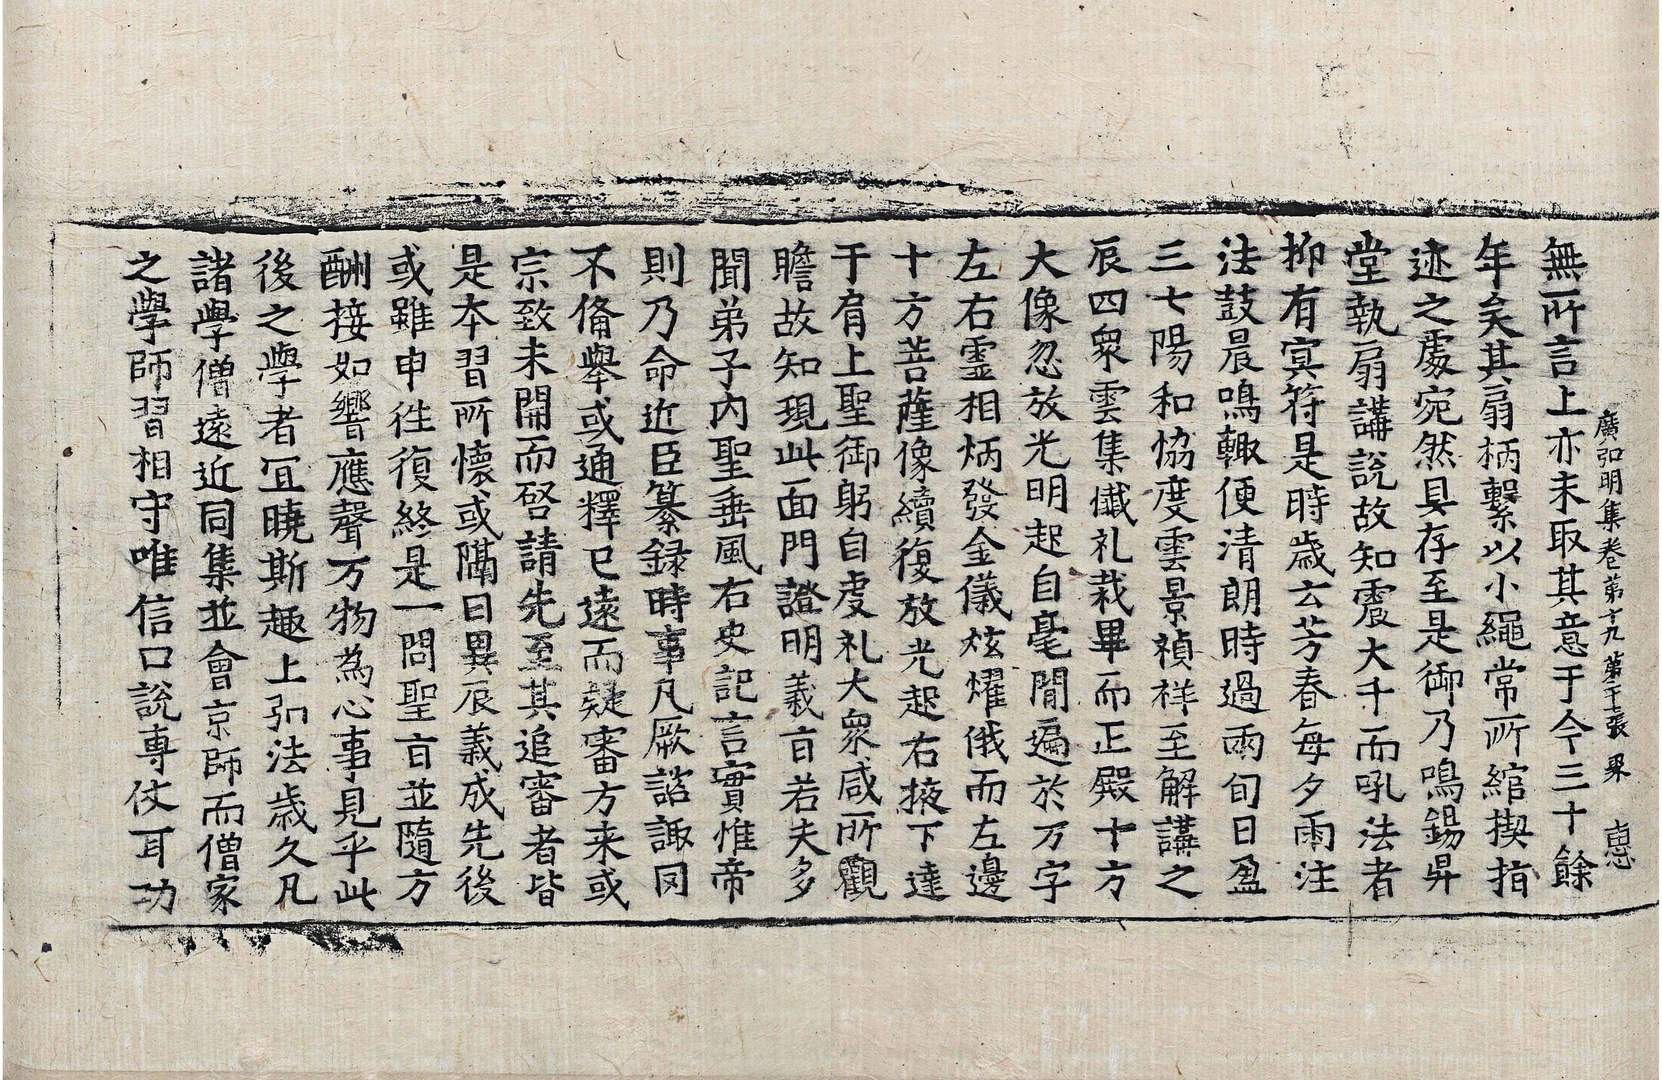 廣弘明集卷第十九 第二十張 㓛 恵
無所言上亦未取其意于今三十餘
年矣其扇柄繫以小繩常所綰揳指
迹之處宛然具存至是御乃鳴錫昇
堂執扇講說故知震大千而吼法者
抑有㝠符是時歲云芳春每夕雨注
法鼓晨鳴輙便清朗時過兩旬日盈
三七陽和協度雲景禎祥至解講之
辰四衆雲集懺礼裁畢而正殿十方
大像忽放光明起自毫間遍於万字
左右靈相炳發金儀炫燿俄而左邊
十方菩薩像續復放光起右掖下達
于肩上聖御躬自虔礼大衆咸所觀
瞻故知現此面門證明義㫖若夫多
聞弟子內聖垂風右史記言實惟帝
則乃命近臣纂録時事凡厥諮諏罔
不俻舉或通釋已遠而疑審方来或
宗致未開而啓請先至其追審者皆
是本習所懷或隔日異辰義成先後
或雖申徃復終是一問聖㫖並隨方
酬接如響應聲万物為心事見乎此
後之學者宜曉斯趣上弘法歲久凡
諸學僧遠近同集並會京師而僧家
之學師習相守唯信口說專仗耳功